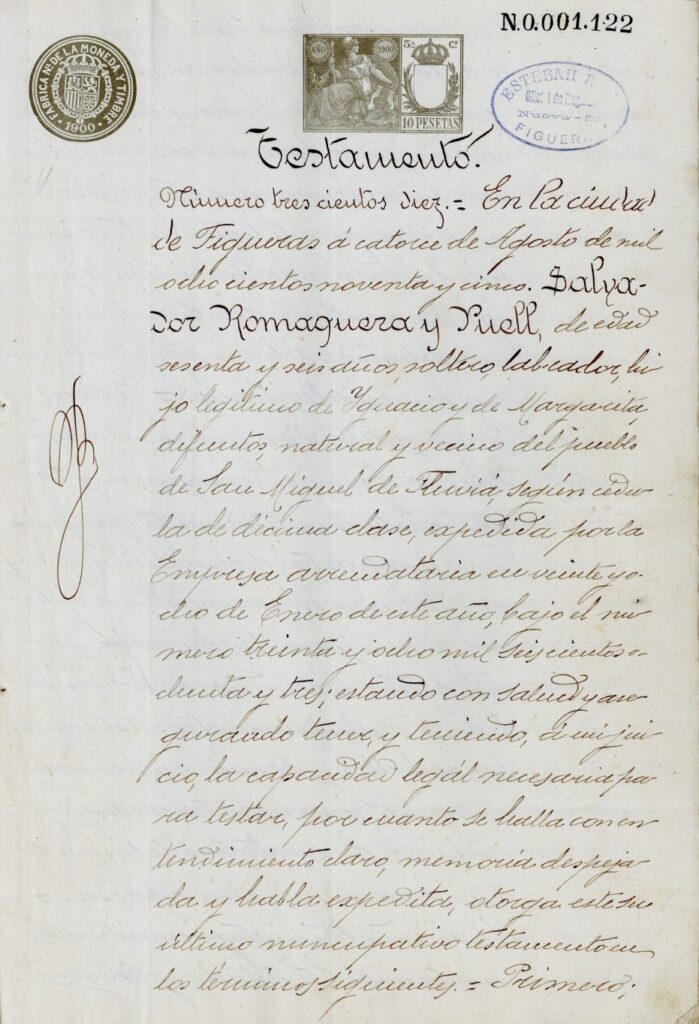 N.0.001.122
FABRICA NAL DE LA MONEDA Y TIMBRE
1900
AÑO 1900
5ª Cª
10 PESETAS
ESTEBAN
Nueva
FIGUER
Testamento.
Número tres cientos diez.= En la ciudad
de Figueras á catorce de Agosto de mil
ocho cientos noventa y cinco. Salva-
dor Romaguera y Puell, de edad
sesenta y seis años, soltero, labrador, hi-
jo legítimo de Ygnacio y de Margarita,
difuntos, natural y vecino del pueblo
de San Miguel de Fluviá, según cédu-
la de décima clase, expedida por la
Empresa arrendataria en veinte y o-
cho de Enero de este año, bajo el nú-
mero treinta y ocho mil seis cientos o-
chenta y tres; estando con salud y ase-
gurando tener, y teniendo, á mi jui-
cio, la capacidad legal necesaria pa-
ra testar, por cuanto se halla con en-
tendimiento claro, memoria despeja-
da y habla expedita, otorga este su
último nuncupativo testamento en
los términos siguientes.= Primero;